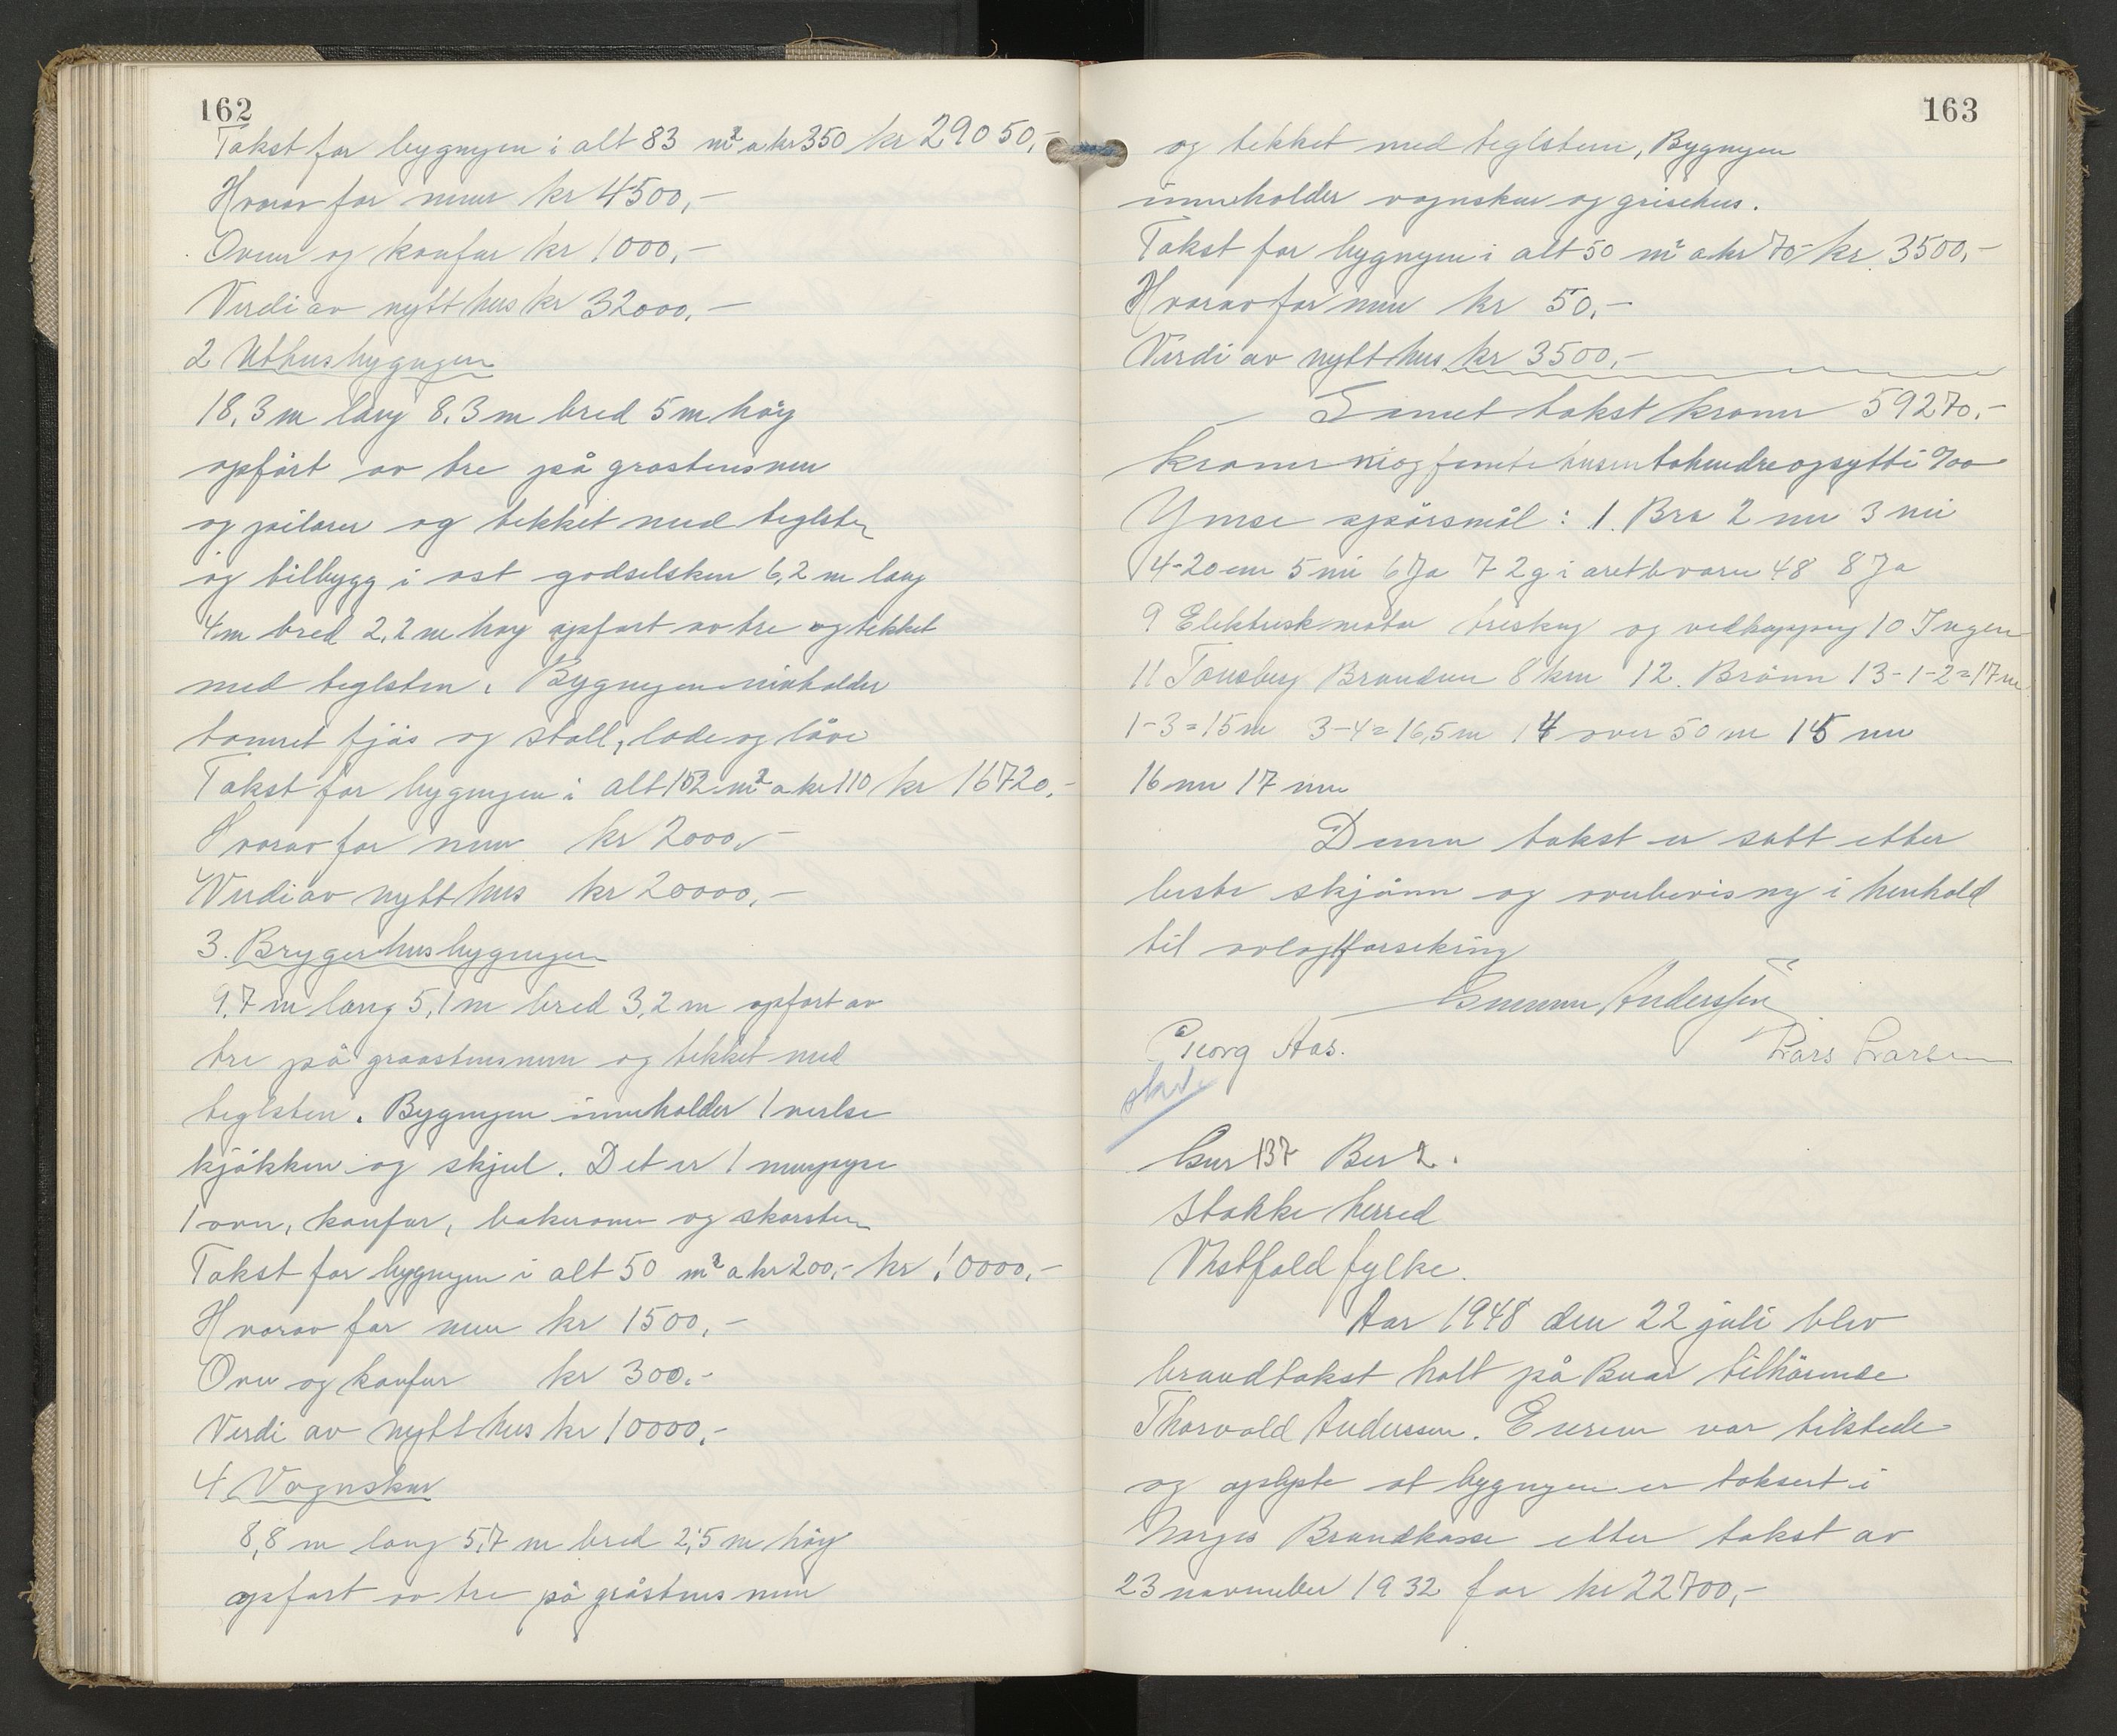 162
Takst for bygngen i alt 83 m² a kr 350 kr 29050,-
Hvorav for mur kr 4500,-
Ovner og komfur kr 1000,-
Verdi av nytt hus kr 32000,-
2 Uthusbygngen
18,3 m lang 8,3 m bred 5 m høy
opført av tre på grastensmur
og pilarer og tekket med teglsten
og tilbygg i øst gödselskur 6,2 m lang
4 m bred 2,2 m høy opført av tre og tekket
med teglsten. Bygngen inholder
tömret fjøs og stall, lade og låve
Takst for bygngen i alt 152 m² a kr 110 kr 16720,-
Hvorav for mur kr 2000,-
Verdi av nytt hus kr 20000,-
3. Brygerhusbygngen
9,7 m lang 5,1 m bred 3,2 m opført av
tre på graastensmur og tekket med
teglsten. Bygngen inneholder 1 verlse
kjökken og skjul. Det er 1 murpipe
1 ovn, komfur, bakerovn og skorsten
Takst for bygngen i alt 50 m² a kr 200,- kr 10000,-
Hvorav for mur kr 1500,-
Ovn og komfur kr 300,-
Verdi av nytt hus kr 10000,-
4 Vognskur
8,8 m lang 5,7 m bred 2,5 m høy
opført av tre på gråstens mur
163
og tekket med teglsten, Bygngen
inneholder vognskur og grisehus.
Takst for bygngen i alt 50 m² a kr 70,- kr 3500,-
Hvorav for mur kr 50,-
Verdi av nytt hus kr 3500,-
Samet takst kroner 59270,-
kroner niogfemtitusentohundreogsytti %oo
Ymse spörsmål: 1. Bra 2 nei 3 nei
4-20 cm 5 nei 6 Ja 7 2 g i aret 48 8 Ja
9 Elektrisk motor treskng og vedkappng 10 Ingen
11 Tonsberg Brandven 8 km 12. Brönn 13-1-2=17 m
1-3=15 m 3-4=16,5 m 14 over 50 m 15 nei
16 nei 17 nei
Denne takst er satt etter
beste skjönn og overbevisng i henhold
til avlagt forsikring
Gunnar Anderssen
Georg Aas. Lars Larsen
Gnr 137 Bnr 2.
Stokke herred
Vestfold fylke.
Aar 1948 den 22 juli blev
brandtakst holt på Buar tilhörende
Thorvald Anderssen. Eieren var tilstede
og oplyste at bygngen er taksert i
Norges Brandkasse etter takst av
23 november 1932 for kr 22700,-